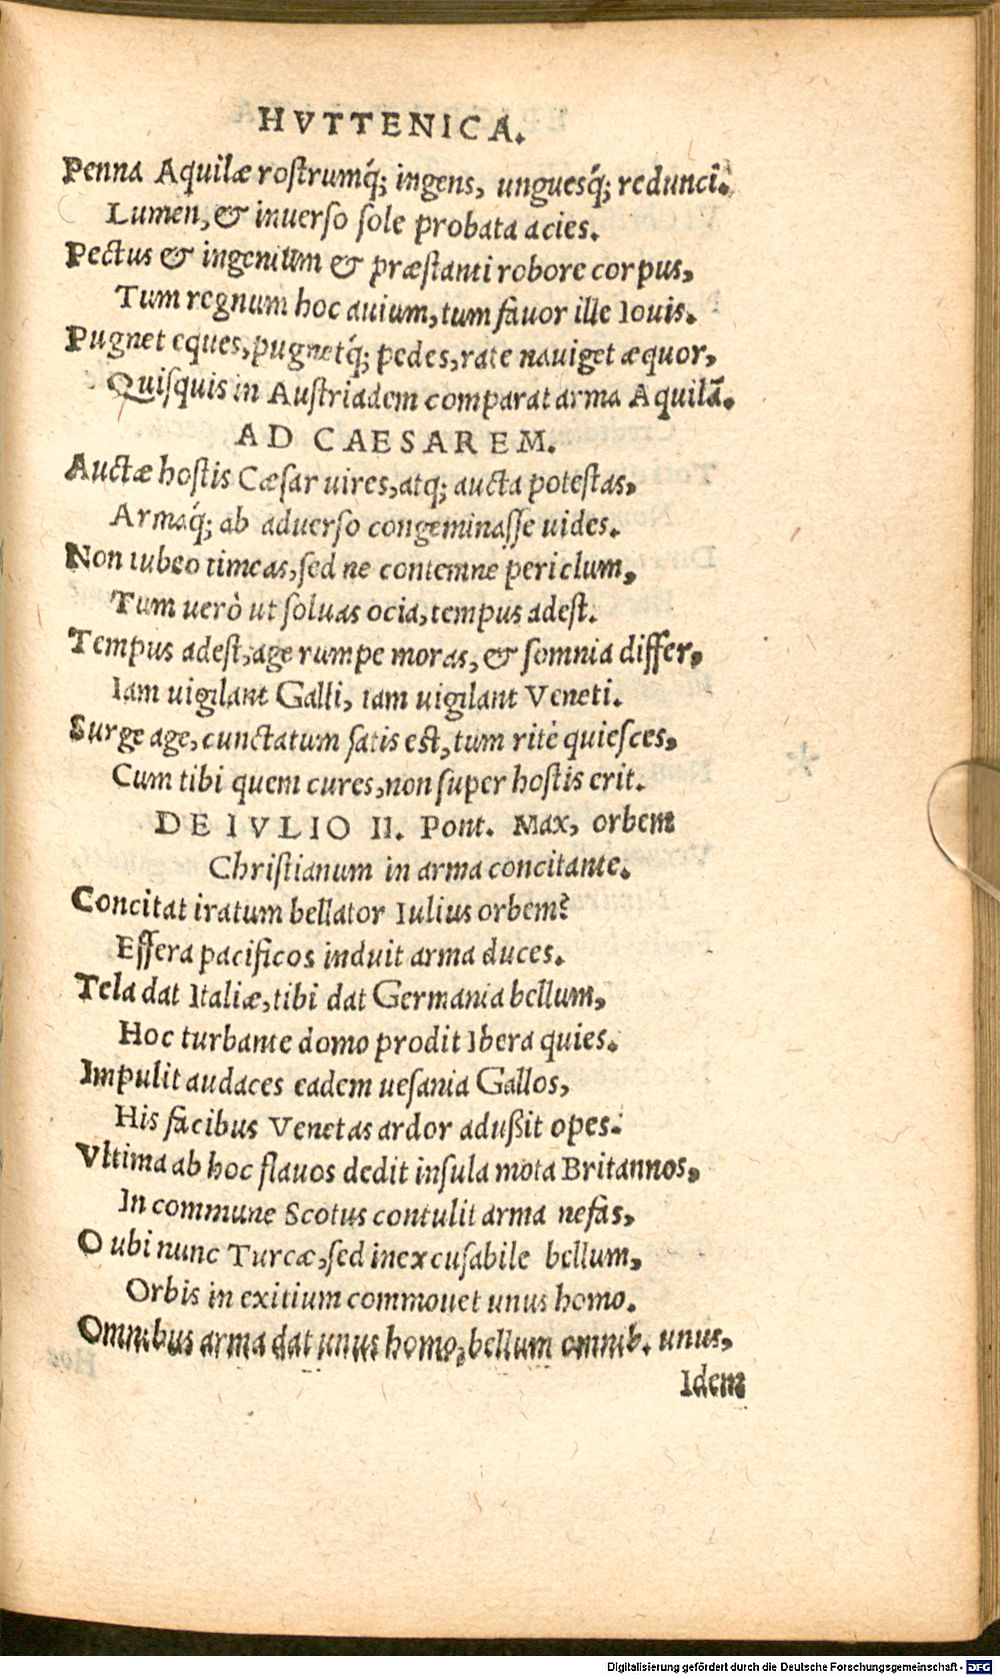 HVTTENICA.
Penna Aquilæ rostrumq́; ingens, unguesq́; redunci.
Lumen, & inuerso sole probata acies.
Pectus & ingenium & præstanti robore corpus,
Tum regnum hoc auium, tum fauor ille Iouis.
Pugnet eques, pugnetq́; pedes, rate nauiget æquor,
Quisquis in Austriadem comparat arma Aquilā.
AD CAESAREM.
Auctæ hostis Cæsar uires, atq; aucta potestas,
Armaq́; ab aduerso congeminasse uides.
Non iubeo timeas, sed ne contemne periclum,
Tum uerò ut soluas ocia, tempus adest.
Tempus adest, age rumpe moras, & somnia differ,
Iam uigilant Galli, iam uigilant Veneti.
Surge age, cunctatum satis est, tum ritè quiesces,
Cum tibi quem cures, non super hostis erit.
DE IVLIO II. Pont. Max, orbem
Christianum in arma concitante.
Concitat iratum bellator Iulius orbem?
Effera pacificos induit arma duces.
Tela dat Italiæ, tibi dat Germania bellum,
Hoc turbante domo prodit Ibera quies.
Impulit audaces eadem uesania Gallos,
His facibus Venetas ardor adußit opes.
Vltima ab hoc flauos dedit insula mota Britannos,
In commune Scotus contulit arma nefas,
O ubi nunc Turcæ, sed inexcusabile bellum,
Orbis in exitium commouet unus homo.
Omnibus arma dat unus homo, bellum omnib. unus,
Idem
Digitalisierung gefördert durch die Deutsche Forschungsgemeinschaft - DFG